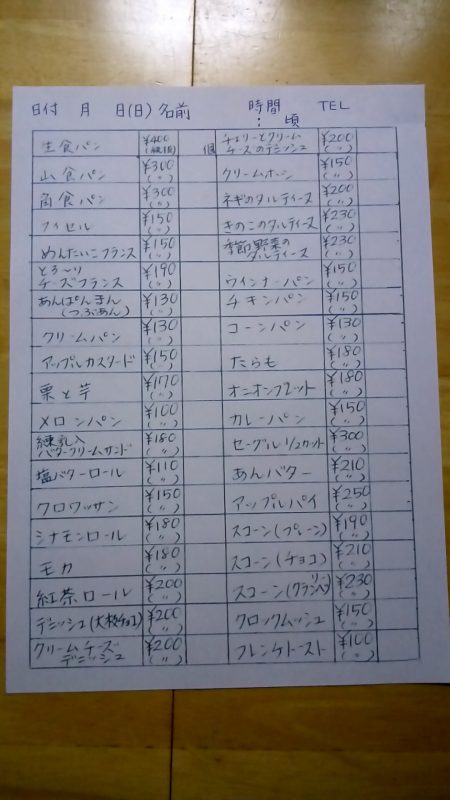 日付 月 日(日) 名前 時間 : 頃 TEL
生食パン ¥400 (税抜) 個
山食パン ¥300 (〃)
角食パン ¥300 (〃)
フィセル ¥150 (〃)
めんたいこフランス ¥150 (〃)
とろ〜り
チーズフランス ¥190 (〃)
あんぱんまん
(つぶあん) ¥130 (〃)
クリームパン ¥130 (〃)
アップルカスタード ¥150 (〃)
栗と芋 ¥170 (〃)
メロンパン ¥100 (〃)
練乳入
バタークリームサンド ¥180 (〃)
塩バターロール ¥110 (〃)
クロワッサン ¥150 (〃)
シナモンロール ¥180 (〃)
モカ ¥180 (〃)
紅茶ロール ¥200 (〃)
デニッシュ(大枚チョコ) ¥200 (〃)
クリームチーズ
デニッシュ ¥200 (〃)
チェリーとクリーム
チーズのデニッシュ ¥200 (〃)
クリームホーン ¥150 (〃)
ネギのタルティーヌ ¥200 (〃)
きのこのタルティーヌ ¥230 (〃)
季節野菜の
タルティーヌ ¥230 (〃)
ウインナーパン ¥150 (〃)
チキンパン ¥150 (〃)
コーンパン ¥130 (〃)
たらも ¥180 (〃)
オニオンフロマット ¥180 (〃)
カレーパン ¥150 (〃)
セーグル 1/2カット ¥300 (〃)
あんバター ¥210 (〃)
アップルパイ ¥250 (〃)
スコーン(プレーン) ¥190 (〃)
スコーン(チョコ) ¥210 (〃)
スコーン(クランベリー) ¥230 (〃)
クロックムッシュ ¥150 (〃)
フレンチトースト ¥100 (〃)